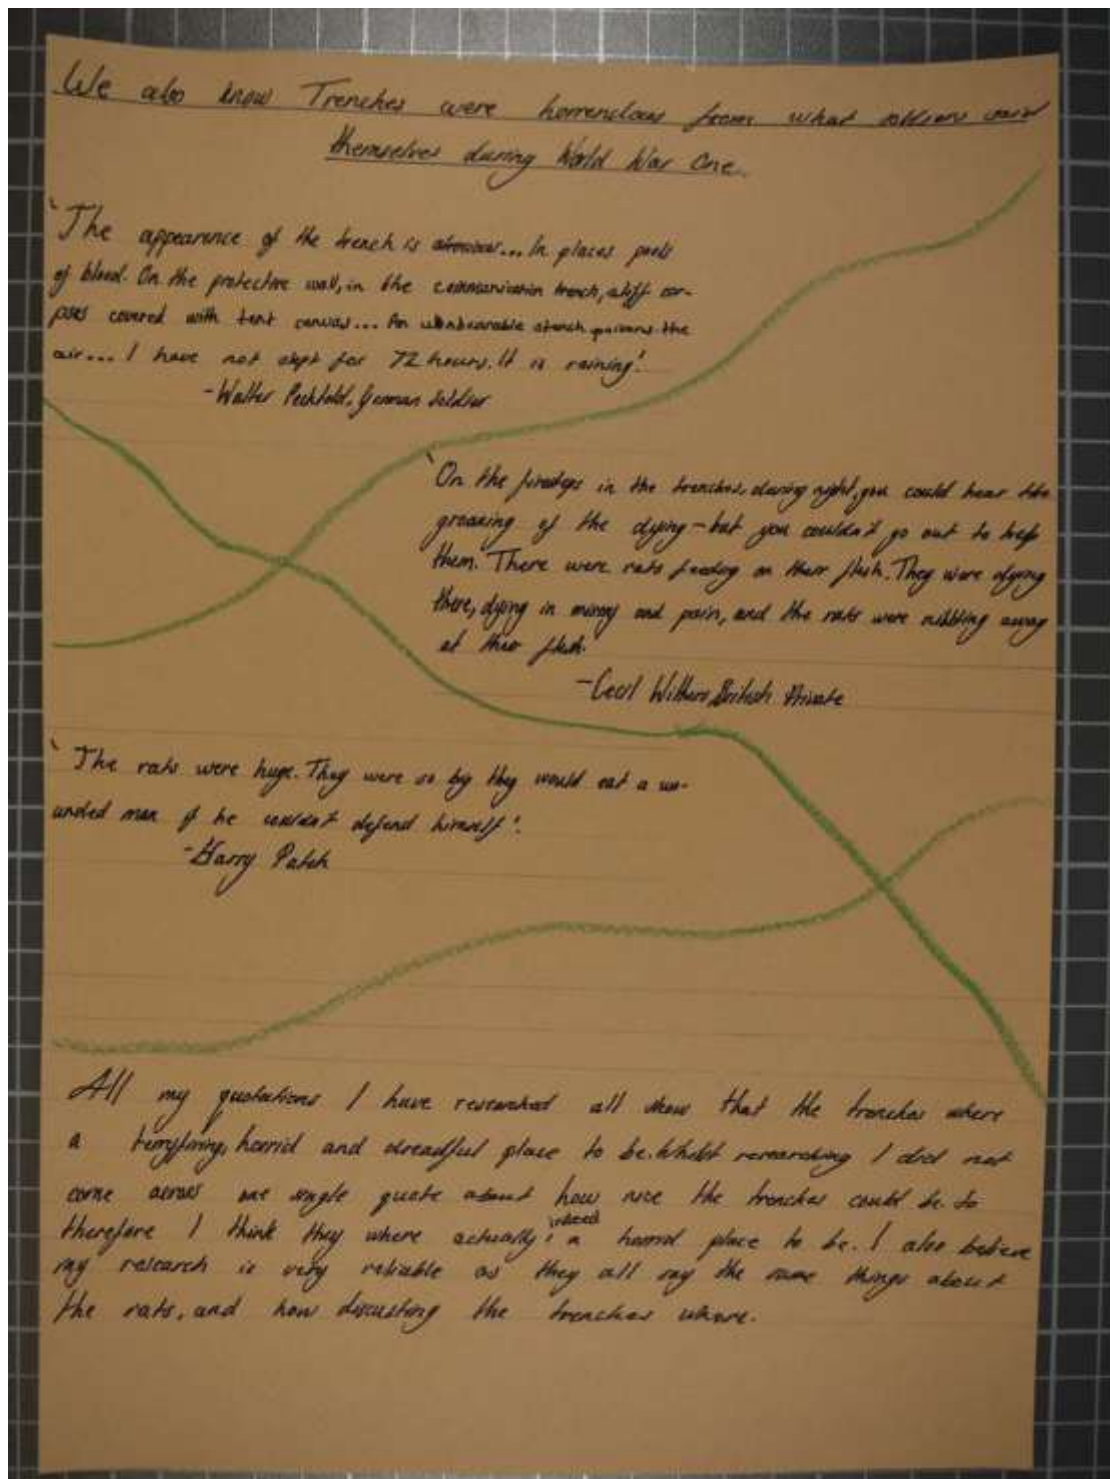 We also know Trenches were horrendous from what soldiers said
themselves during World War One.
'The appearence of the trench is atrocious... In places pools
of blood. On the protective wall, in the communication trench, stiff cor-
pses covered with tent canvas... An unbearable stench poisons the
air... I have not slept for 72 hours. It is raining!'
-Walter Pechtold, German Soldier
'On the firesteps in the trenches, during night, you could hear the
groaning of the dying - but you couldn't go out to help
them. There were rats feeding on their flesh. They were dying
there, dying in misery and pain, and the rats were nibbling away
at their flesh.
-Cecil Withers, British Private
'The rats were huge. They were so big they would eat a wo-
unded man if he couldn't defend himself'.
-Harry Patch
All my quotations I have researched all show that the trenches where
a terryfining, horrid and dreadful place to be. Whilst researching I did not
come across one single quote about how nice the trenches could be. So
therefore I think they where actually indeed a horrid place to be. I also believe
my research is very reliable as they all say the same things about
the rats, and how discusting the trenches where.